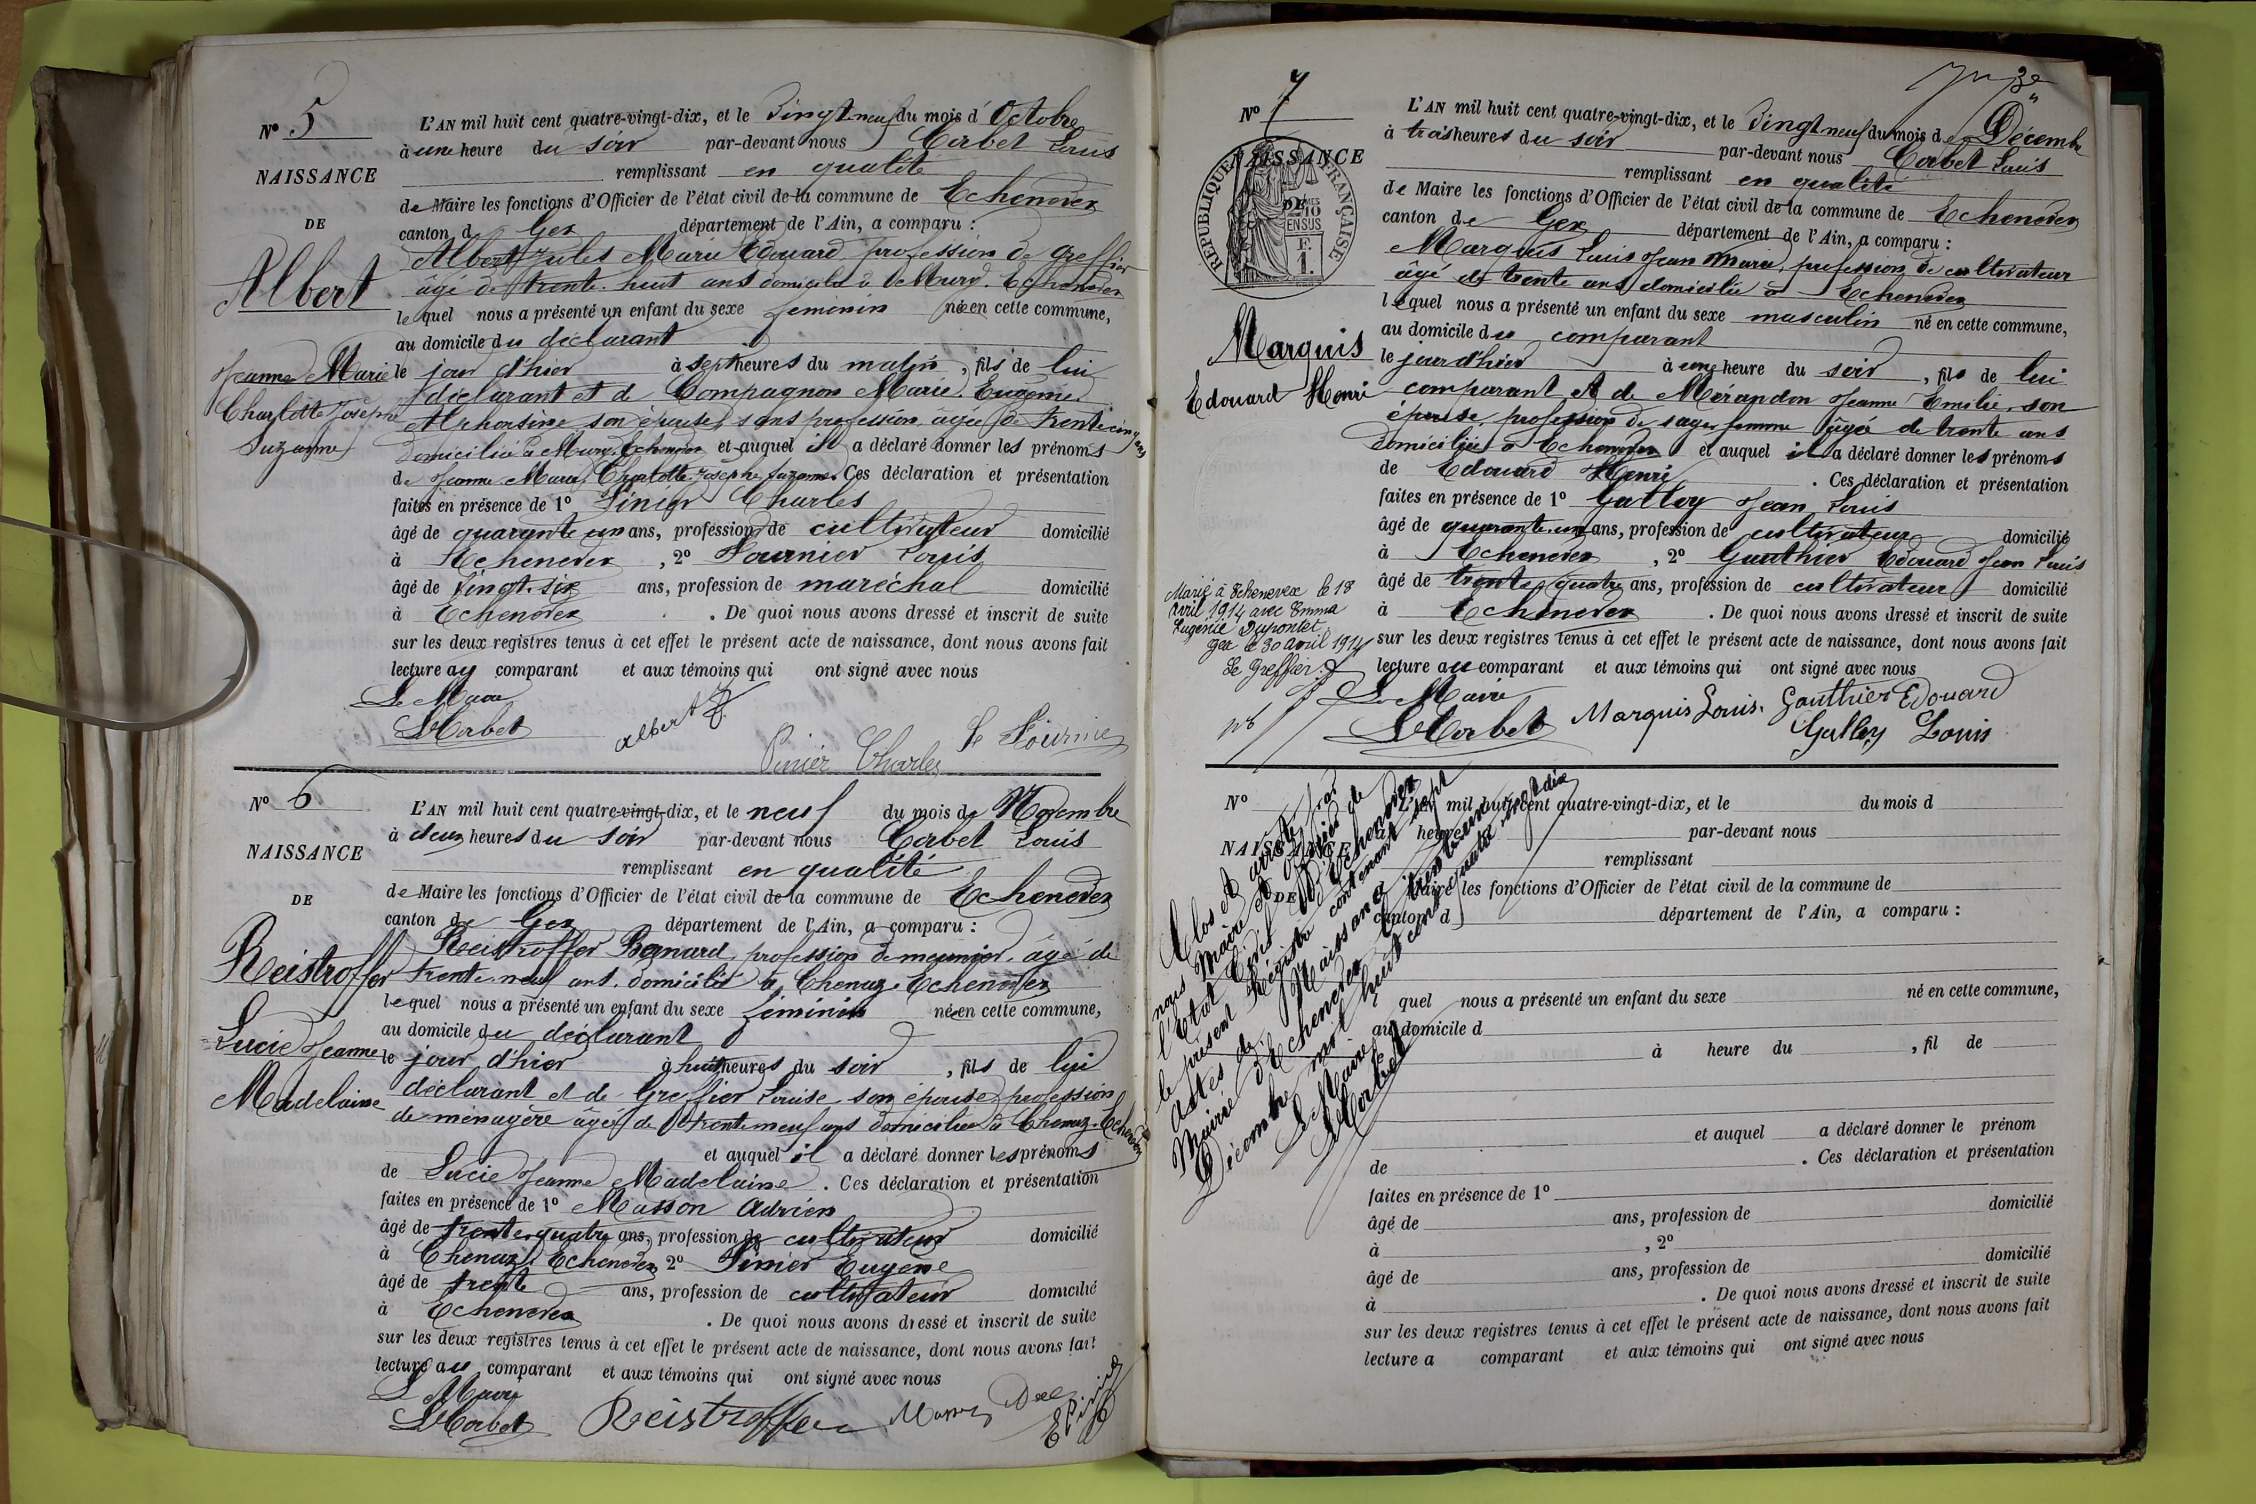 N° 5
NAISSANCE
DE
Albert
Jeanne Marie
Charlotte Josèphe
Suzanne
L'AN mil huit cent quatre-vingt-dix, et le Vingt neuf du mois d'Octobre
à une heure du soir par-devant nous Corbet Louis
remplissant en qualité
de Maire les fonctions d'Officier de l'état civil de la commune de Echenevex
canton de Gex département de l'Ain, a comparu :
Albert Jules Marie Edouard profession de Greffier
âgé de trente huit ans domicilié à Mury. Echenevex
lequel nous a présenté un enfant du sexe féminin née en cette commune,
au domicile du déclarant
le jour d'hier à sept heures du matin, fils de lui
déclarant et de Compagnon Marie Eugénie
Alphonsine son épouse, sans profession âgée de trente cinq ans
domiciliée à Mury. Echenevex et auquel il a déclaré donner les prénoms
de Jeanne Marie Charlotte Josèphe Suzanne. Ces déclaration et présentation
faites en présence de 1° Pinier Charles
âgé de quarante un ans, profession de cultivateur domicilié
à Echenevex, 2° Fournier Louis
âgé de vingt-six ans, profession de maréchal domicilié
à Echenevex. De quoi nous avons dressé et inscrit de suite
sur les deux registres tenus à cet effet le présent acte de naissance, dont nous avons fait
lecture au comparant et aux témoins qui ont signé avec nous
Le Maire
L Corbet Albert J.
Pinier Charles Fournier
N° 6
NAISSANCE
DE
Reistroffer
Lucie Jeanne
Madelaine
L'AN mil huit cent quatre-vingt-dix, et le neuf du mois de Novembre
à deux heures du soir par-devant nous Corbet Louis
remplissant en qualité
de Maire les fonctions d'Officier de l'état civil de la commune de Echenevex
canton de Gex département de l'Ain, a comparu :
Reistroffer Bernard, profession de meunier, âgé de
trente neuf ans, domicilié à Chenaz. Echenevex
lequel nous a présenté un enfant du sexe féminin née en cette commune,
au domicile du déclarant
le jour d'hier à huit heures du soir, fils de lui
déclarant et de Greffier Louise son épouse, profession
de ménagère âgée de trente neuf ans domiciliée à Chenaz. Echenevex
et auquel il a déclaré donner les prénoms
de Lucie Jeanne Madelaine. Ces déclaration et présentation
faites en présence de 1° Masson Adrien
âgé de trente quatre ans, profession de cultivateur domicilié
à Chenaz. Echenevex, 2° Pinier Eugène
âgé de trente ans, profession de cultivateur domicilié
à Echenevex. De quoi nous avons dressé et inscrit de suite
sur les deux registres tenus à cet effet le présent acte de naissance, dont nous avons fait
lecture au comparant et aux témoins qui ont signé avec nous
Le Maire
L Corbet Reistroffer
N° 7
NAISSANCE
DE
RÉPUBLIQUE FRANÇAISE
Marquis
Edouard Henri
Marié à Echenevex le 18
Avril 1914 avec Emma
Eugénie Dupontet
Gex le 30 avril 1914
Le Greffier
L'AN mil huit cent quatre-vingt-dix, et le Vingt neuf du mois de Décembre
à trois heures du soir par-devant nous Corbet Louis
remplissant en qualité
de Maire les fonctions d'Officier de l'état civil de la commune de Echenevex
canton de Gex département de l'Ain, a comparu :
Marquis Louis Jean Marie, profession de cultivateur
âgé de trente ans domicilié à Echenevex
lequel nous a présenté un enfant du sexe masculin né en cette commune,
au domicile du comparant
le jour d'hier à une heure du soir, fils de lui
comparant et de Mérandon Jeanne Emilie, son
épouse, profession de sage femme âgée de trente ans
domiciliée à Echenevex et auquel il a déclaré donner les prénoms
de Edouard Henri. Ces déclaration et présentation
faites en présence de 1° Galley Jean Louis
âgé de quarante un ans, profession de cultivateur domicilié
à Echenevex, 2° Gauthier Edouard Jean Louis
âgé de trente quatre ans, profession de cultivateur domicilié
à Echenevex. De quoi nous avons dressé et inscrit de suite
sur les deux registres tenus à cet effet le présent acte de naissance, dont nous avons fait
lecture au comparant et aux témoins qui ont signé avec nous
Le Maire
L Corbet Marquis Louis. Gauthier Edouard
Galley Louis
N°
NAISSANCE
DE
L'AN mil huit cent quatre-vingt-dix, et le du mois d
à heure par-devant nous
remplissant
Maire les fonctions d'Officier de l'état civil de la commune de
canton d département de l'Ain, a comparu :
quel nous a présenté un enfant du sexe né en cette commune,
au domicile d
à heure du , fil de
et auquel a déclaré donner le prénom
de . Ces déclaration et présentation
faites en présence de 1°
âgé de ans, profession de domicilié
à , 2°
âgé de ans, profession de domicilié
à . De quoi nous avons dressé et inscrit de suite
sur les deux registres tenus à cet effet le présent acte de naissance, dont nous avons fait
lecture a comparant et aux témoins qui ont signé avec nous
Clos et arrêté par
nous Maire et Officier de
l'Etat Civil d'Echenevex
le présent Régistre contenant sept
actes de Naissance
Mairie d'Echenevex le trente un
Décembre mil huit cent quatre vingt dix
Le Maire
L Corbet